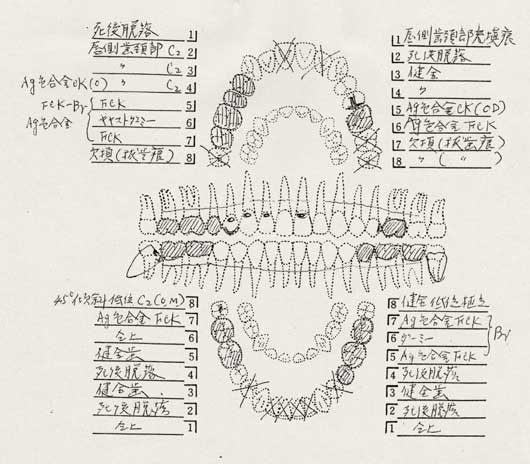 死後脱落 1
唇側歯頚部 C2 2
〃 C2 3
Ag色合金CK(O) 〃 C2 4
FCK-Br FCK 5
Ag色合金 ダミー 6
FCK 7
欠損(抜歯痕) 8
1 唇側歯頚部充填痕
2 死後脱落
3 健全
4 〃
5 Ag色合金CK(OD)
6 色合金FCK
7 欠損(抜歯痕)
8 〃 ( 〃 )
45°傾斜低位 C2(O,M) 8
Ag色合金FCK 7
仝上 6
健全歯 5
死後脱落 4
健全歯 3
死後脱落 2
仝上 1
8 健全低位
7 Ag色合金FCK
6 ダミー Br
5 Ag色合金FCK
4 死後脱落
3 健全歯
2 死後脱落
1 仝上